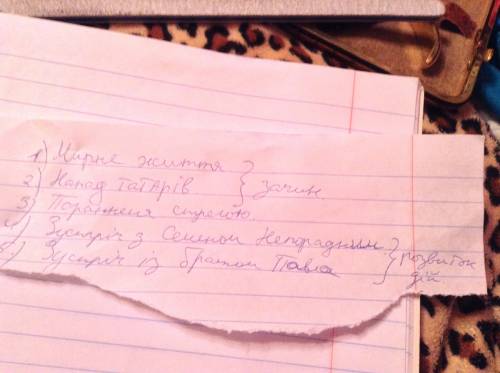 1) Мирне життя
2) Напад татарів } зачин.
3) Поранення стрелою.
4) Зустріч з Семеном Непорадним
5) Зустріч із братом Павла } розвиток дій